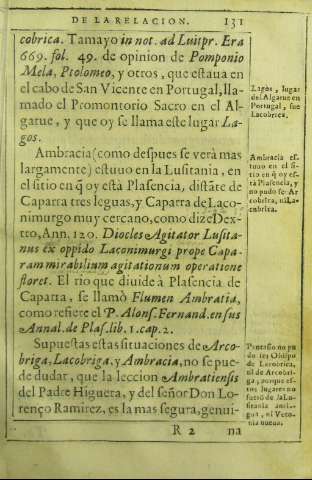 DE LA RELACION. 131
cobrica. Tamayo in not. ad Luitpr. Era
669. fol. 49. de opinion de Pomponio
Mela, Ptolomeo, y otros, que estaua en
el cabo de San Vicente en Portugal, lla-
mado el Promontorio Sacro en el Al-
garue, y que oy se llama este lugar La-
gos.
Ambracia (como despues se verà mas
largamente) estuuo en la Lusitania, en
el sitio en q̃ oy està Plasencia, distãte de
Caparra tres leguas, y Caparra de Laco-
nimurgo muy cercano, como dize Dex-
tro, Ann. 120. Diocles Agitator Lusita-
nus ex oppido Laconimurgi prope Capa-
ram mirabilium agitationum operatione
floret. El rio que diuide à Plasencia de
Caparra, se llamò Flumen Ambratia,
como refiere el P. Alons. Fernand. en sus
Annal. de Plas. lib. 1. cap. 2.
Supuestas estas situaciones de Arco-
briga, Lacobriga, y Ambracia, no se pue-
de dudar, que la leccion Ambratiensis
del Padre Higuera, y del señor Don Lo-
renço Ramirez, es la mas segura, genui-
R 2 na
Lagos, lugar
del Algarue en
Portugal, fue
Lacobrica.
Ambracia es-
tuuo en el si-
tio en q̃ oy es-
tà Plasencia, y
no pudo ser Ar
cobrica, ni La-
cobrica.
Pantasio no pu
do ser Obispo
de Lacobrica,
ni de Arcobri-
ga, porque es-
tos lugares no
fuerõ de la Lu-
sitania anti-
gua, ni
nia nueua.